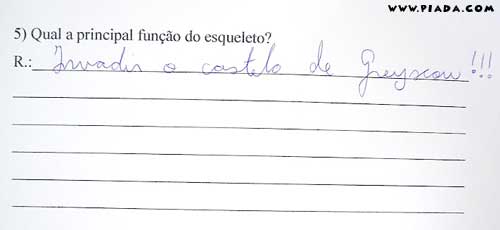 WWW.PIADA.COM
5) Qual a principal função do esqueleto?
R.: Invadir o castelo de Greyscow!!!